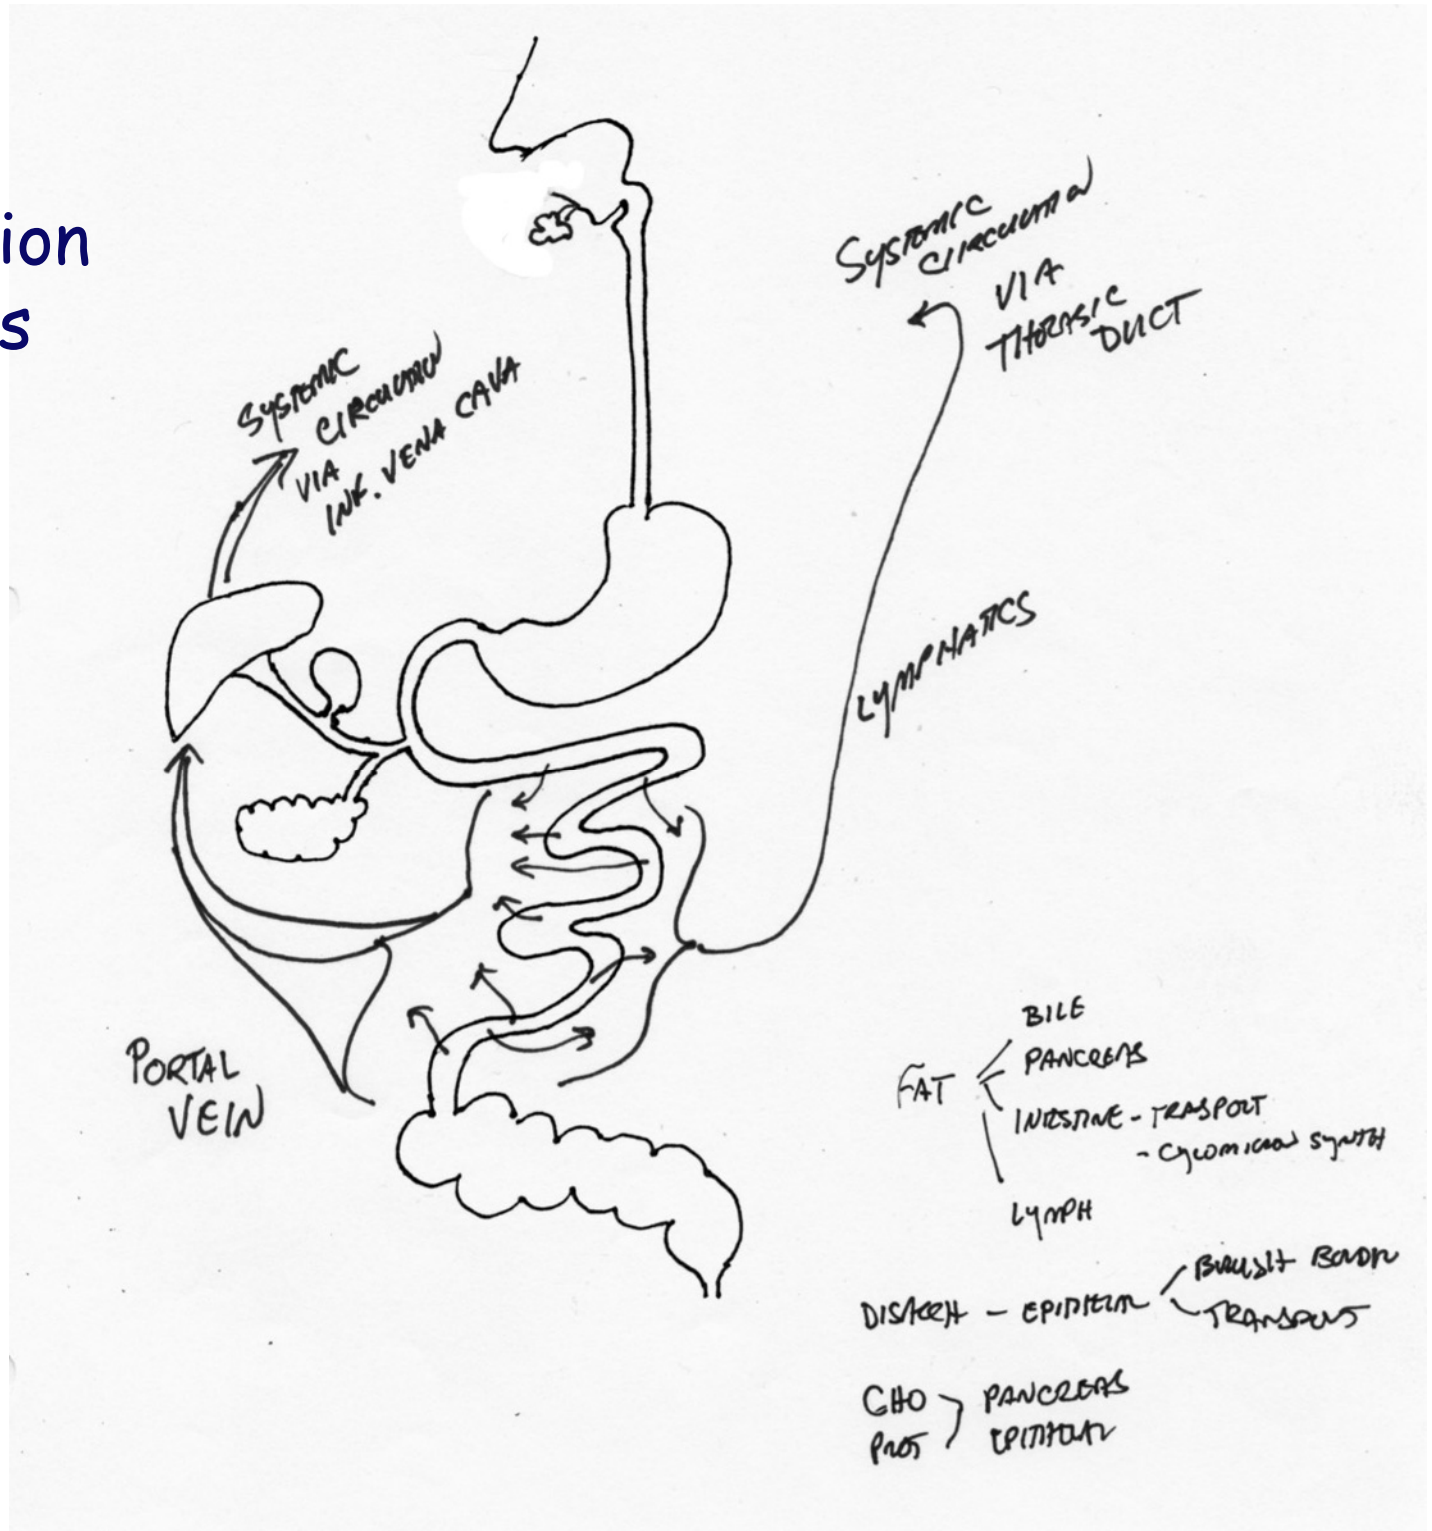 ion
s
SYSTEMIC
CIRCULATION
VIA
INF. VENA CAVA
SYSTEMIC
CIRCULATION
VIA
THORASIC
DUCT
LYMPHATICS
PORTAL
VEIN
FAT
BILE
PANCREAS
INTESTINE - TRASPORT
- CYLOMICRON SYNTH
LYMPH
DISACCH - EPITHELIAL
BRUSH BORDER
TRANSPORT
CHO
PROT
PANCREAS
EPITHELIAL